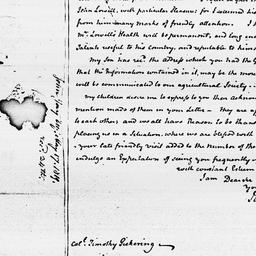 John Lowell, with particular Pleasure; for I received his
from him many marks of friendly attention. I
Mr. Lowell's Health will be permanent, and long en
Talents useful to his Country, and reputable to hims
My Son has recd. the Address which you had the G
that the Information contained in it, may be the more
will be communicated to our agricultural Society.
My children desire me to express to you their acknow
mention made of them in your Letter - They are af
to each other; and we all have Reason to be thank
placing us in a Situation, where we are blessed with
your late friendly visit added to the Number of tho
indulge an Expectation of seeing you frequently
with constant Esteem
I am Dear Sir
Yo
Col. Timothy Pickering
John Jay